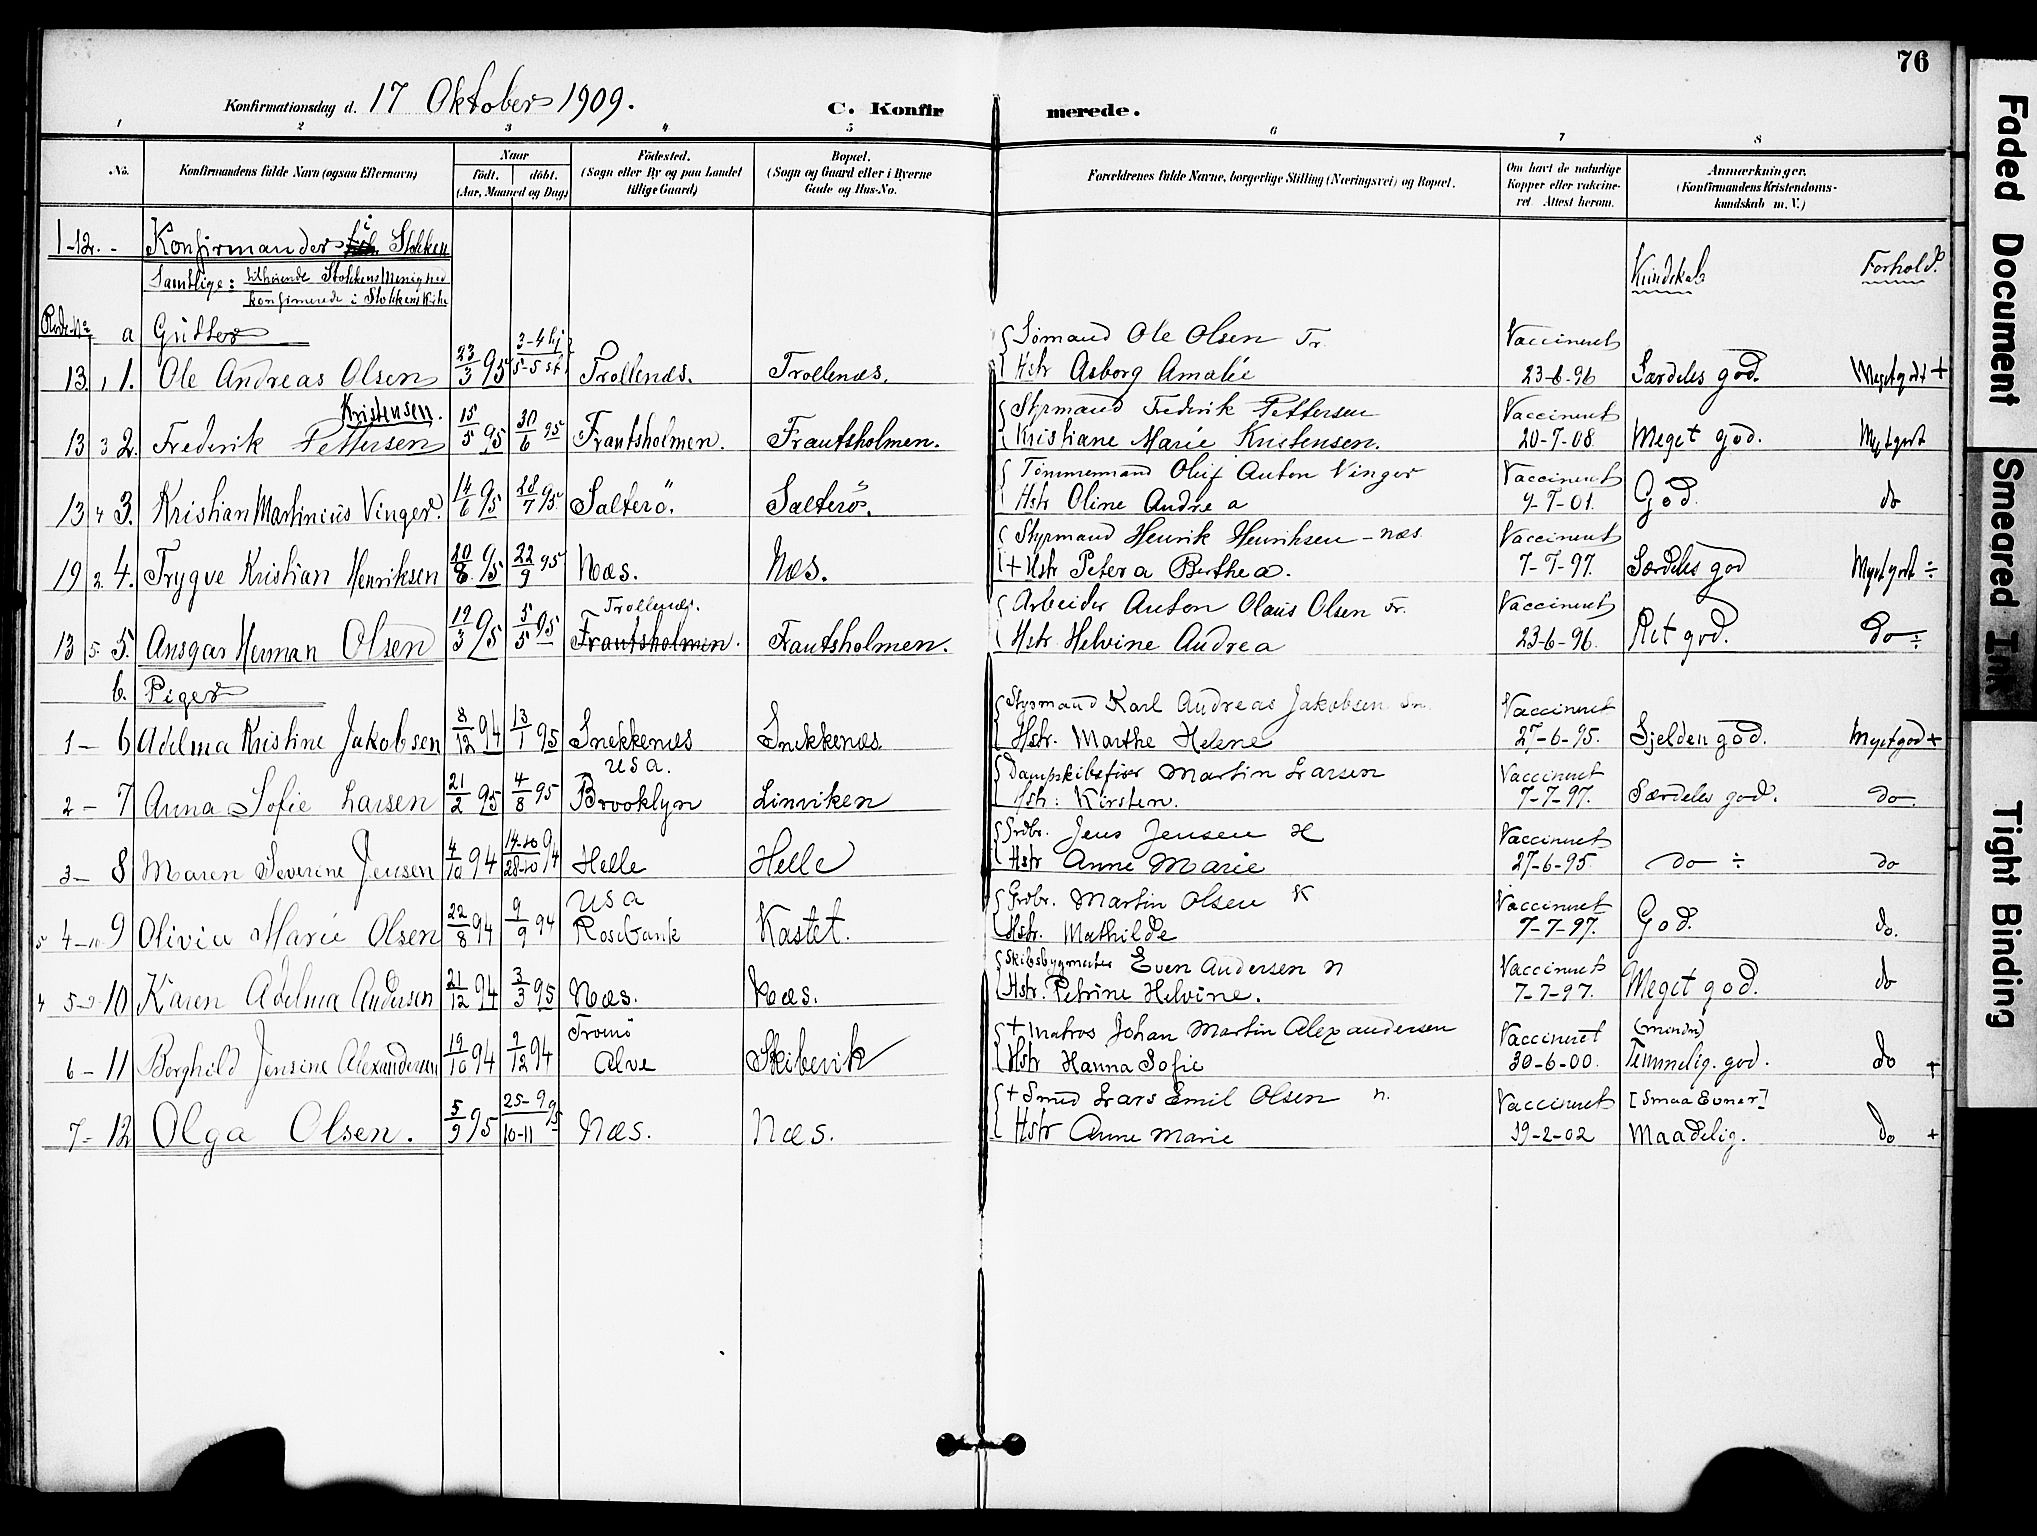 76
Konfirmationsdag d. 17 Oktober 1909. C. Konfirmerede.
1 2 3 4 5 6 7 8
No. Konfirmandens fulde Navn (ogsaa Efternavn) Naar födt. döbt. (Aar, Maaned og Dag) Födested. (Sogn eller By og paa Landet tillige Gaard) Bopæl. (Sogn og Gaard eller i Byerne Gade og Hus-No. Forældrenes fulde Navne, borgerlige Stilling (Næringsvei) og Bopæl. Om havt de naturlige Kopper eller vakcineret Attest herom. Anmærkninger. (Konfirmandens Kristendomskundskab m. V.)
1-12. - Konfirmander i Stokken
Samtlige: tilhörende Stokkens Menighed
konfirmerede i Stokkens Kirke
Kundskab Forhold.
a Gutter
{Sømand Ole Olsen Tr. Vaccineret
13. 1 1. Ole Andreas Olsen 23/3 95 3-4 hj 5-5 st Trollenæs. Trollenæs. Hstr Asborg Amalie 23-6-96 Særdeles god. Meget godt +
Kristensen. {Styrmand Frederik Pettersen Vaccineret
13 3 2. Frederik Pettersen 15/5 95 30/6 95 Frautsholmen. Frautsholmen. Kristiane Marie Kristensen. 20-7-08 Meget god. Meget godt
Tømmermand Oluf Anton Vinger Vaccineret
13 4 3. Kristian Martinius Vinger. 14/6 95 28/7 95. Salterö. Salterö. Hstr Oline Andrea 9-7-01. God. do
{Styrmand Henrik Henriksen - næs Vaccineret
19 2. 4. Trygve Kristian Henriksen 20/8 95 22/9 95 Næs. Næs. + Hstr Petera Berthea. 7-7-97. Særdeles god Meget godt ÷
Trollenæs. {Arbeider Anton Olaus Olsen Tr. Vaccineret
13 5. 5. Ansgar Herman Olsen 19/3 95 5/5 95 Frautsholmen. Frautsholmen. Hstr Helvine Andrea 23-6-96. Ret god. do ÷
b. Piger
{Styrmand Karl Andreas Jakobsen Sn. Vaccineret
1 - 6 Adelma Kristine Jakobsen 8/12 94 13/1 95 Snekkenæs Snekkenæs Hstr. Marthe Helene 27-6-95. Sjelden god. Meget god +
USA. {Dampskibsfører Martin Larsen Vaccineret
2 - 7 Anna Sofie Larsen 21/2 95 4/8 95 Brooklyn Linviken Hstr: Kirsten. 7-7-97. Særdeles god. do.
{Grdbr. Jens Jensen H Vaccineret
3 - 8 Maren Severine Jensen 4/10 94 14-10 28-10 94 Helle Helle Hstr Anne Marie 27-6-95 do ÷ do
USA {Grdbr. Martin Olsen K Vaccineret
5 4 - 9 Olivia Marie Olsen 22/8 94 9/9 94 Rosebank Kastet. Hstr. Mathilde 7-7-97. God. do.
{Skibsbygmester Even Andersen N Vaccineret
4 5 - 10 Karen Adelma Andersen 21/12 94 3/3 95 Næs. Næs. Hstr. Petrine Helvine. 7-7-97. Meget god. do
Tromö {+ Matros Johan Martin Alexandersen Vaccineret (mindre)
6 - 11 Borghild Jensine Alexandersen 19/10 94 9/12 94 Alve Skibevik Hstr Hanna Sofie 30-6-00. Temmelig. god. do +
{+ Smed Lars Emil Olsen n. Vaccineret [Smaa Evner]
7 - 12 Olga Olsen. 5/9 95 25-9 10-11 95 Næs. Næs. Hstr Anne Marie 19-2-02 Maadelig. do +
Faded Document
Smeared Ink
Tight Binding